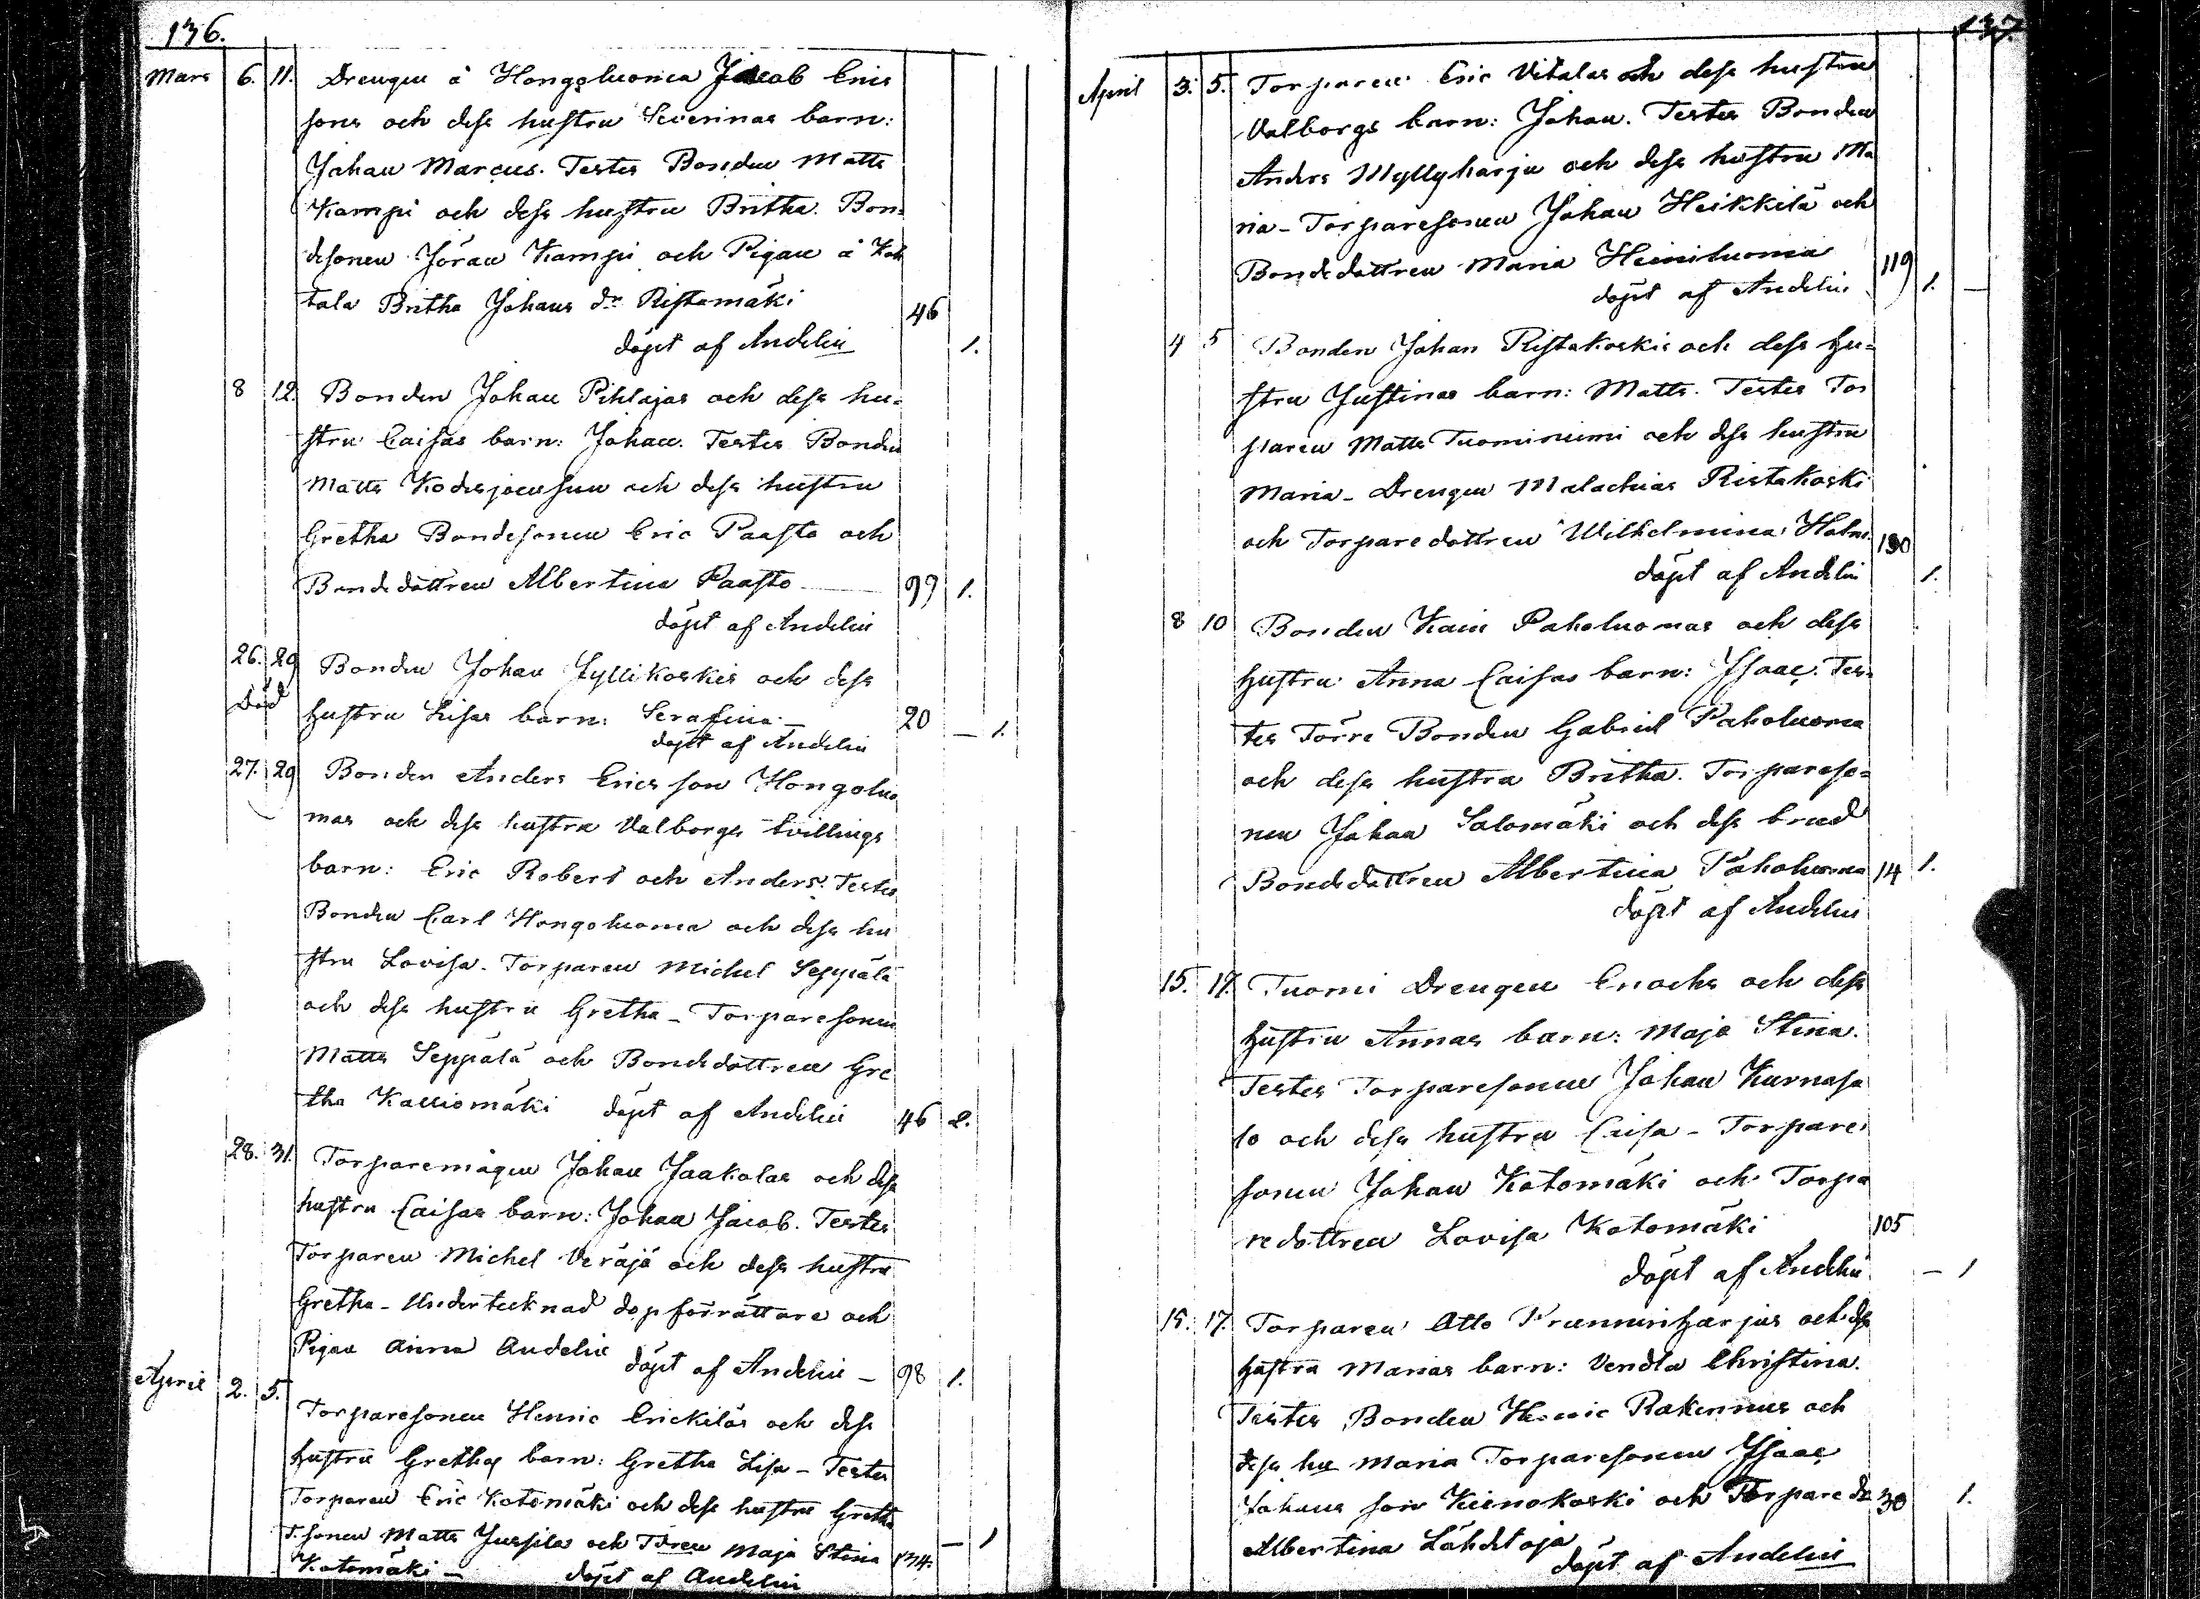 136.
Mars 6. 11. Drengen å Hongoluoma Jacob Erics
sons och dess hustru Severinas barn:
Johan Marcus. Testes Bonden Matts
Kampi och dess hustru Britha. Bon=
desonen Jöran Kampi och Pigan å Koh
tala Britha Johans dr Ristamäki 46
döpt af Andelin 1.
8 12. Bonden Johan Pihlajas och dess hu=
stru Caisas barn: Johan. Testes Bonden
Matts och dess hustru
Gretha Bondesonen Eric Paasto och
Bondedottren Albertina Paasto 99 1.
döpt af Andelin
26. 29 Bonden Johan Jyllikoskis och dess
Död hustru Lisas barn: Serafina. 20 – 1.
döpt af Andelin
27. 29 Bonden Anders Ericsson Hongoluo
mas och dess hustru Valborgs tvillings
barn: Eric Robert och Anders. Testes
Bonden Carl Hongoluoma och dess hu
stru Lovisa. Torparen Michel Seppälä
och dess hustru Gretha – Torparesonen
Matts Seppälä och Bondedottren Gre
tha Kalliomäki döpt af Andelin 46 2.
28. 31. Torparemågen Johan Jaakolas och dess
hustru Caisas barn: Johan Jacob. Testes
Torparen Michel Veräjä och dess hustru
Gretha – Undertecknad dopförrättare och
Pigan Anna Andelin döpt af Andelin – 98 1.
April 2. 5. Torparesonen Henric Erickiläs och dess
hustru Grethas barn: Gretha Lisa – Testes
Torparen Eric Kotomäki och dess hustru Gretha
T.sonen Matts Jussila och T.dren Maja Stina 134. – 1
Kotomäki – döpt af Andelin
137.
April 3. 5. Torparen Eric Vitalas och dess hustru
Valborgs barn: Johan. Testes Bonden
Anders Myllyharju och dess hustru Ma
ria – Torparesonen Johan Heikkilä och
Bondedottren Maria Heiniluoma 119 1. –
döpt af Andelin
4 5 Bonden Johan Ristakoskis och dess hu=
stru Justinas barn: Matts. Testes Tor
paren Matts Tuominiemi och dess hustru
Maria – Drengen Malachias Ristakoski
och Torparedottren Wilhelmina Holm. 130
döpt af Andelin 1.
8 10 Bonden Pakoluomas och dess
hustru Anna Caisas barn: Isaac. Tes=
tes Förre Bonden Gabriel Pakoluoma
och dess hustru Britha. Torpareso=
nen Johan Salomäki och dess brud
Bondedottren Albertina Pakoluoma 14 1.
döpt af Andelin
15. 17. Tuomi Drengen Enochs och dess
hustru Annas barn: Maja Stina.
Testes Torparesonen Johan Kurnasa
lo och dess hustru Caisa – Torpare
sonen Johan Kotomäki och Torpa
redottren Lovisa Kotomäki 105
döpt af Andelin – 1
15. 17. Torparen Otto och dess
hustru Marias barn: Vendla Christina.
Testes Bonden Henric Rakennus och
dess hu Maria Torparesonen Isaac
Johansson Kienokoski och Torpare dr 30 1.
Albertina Lähdetoja
döpt af Andelin